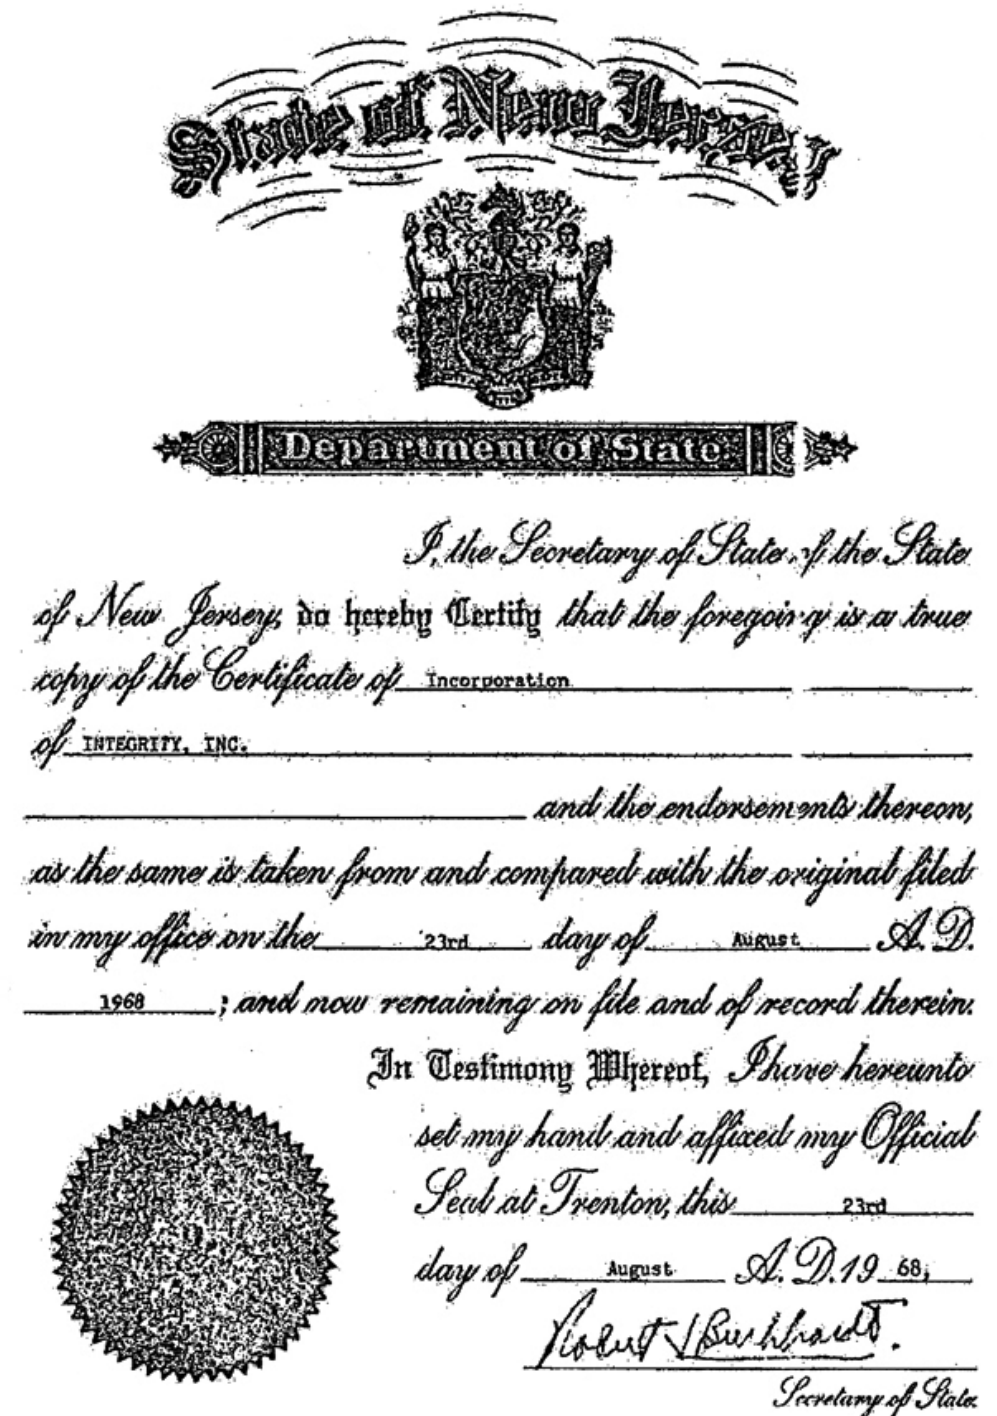 State of New Jersey
Department of State
I, the Secretary of State of the State
of New Jersey, do hereby Certify that the foregoing is a true
copy of the Certificate of Incorporation
of INTEGRITY, INC.
and the endorsements thereon,
as the same is taken from and compared with the original filed
in my office on the 23rd day of August A.D.
1968 ; and now remaining on file and of record therein.
In Testimony Whereof, I have hereunto
set my hand and affixed my Official
Seal at Trenton, this 23rd
day of August A.D. 19 68,
Robert J Burkhardt.
Secretary of State.